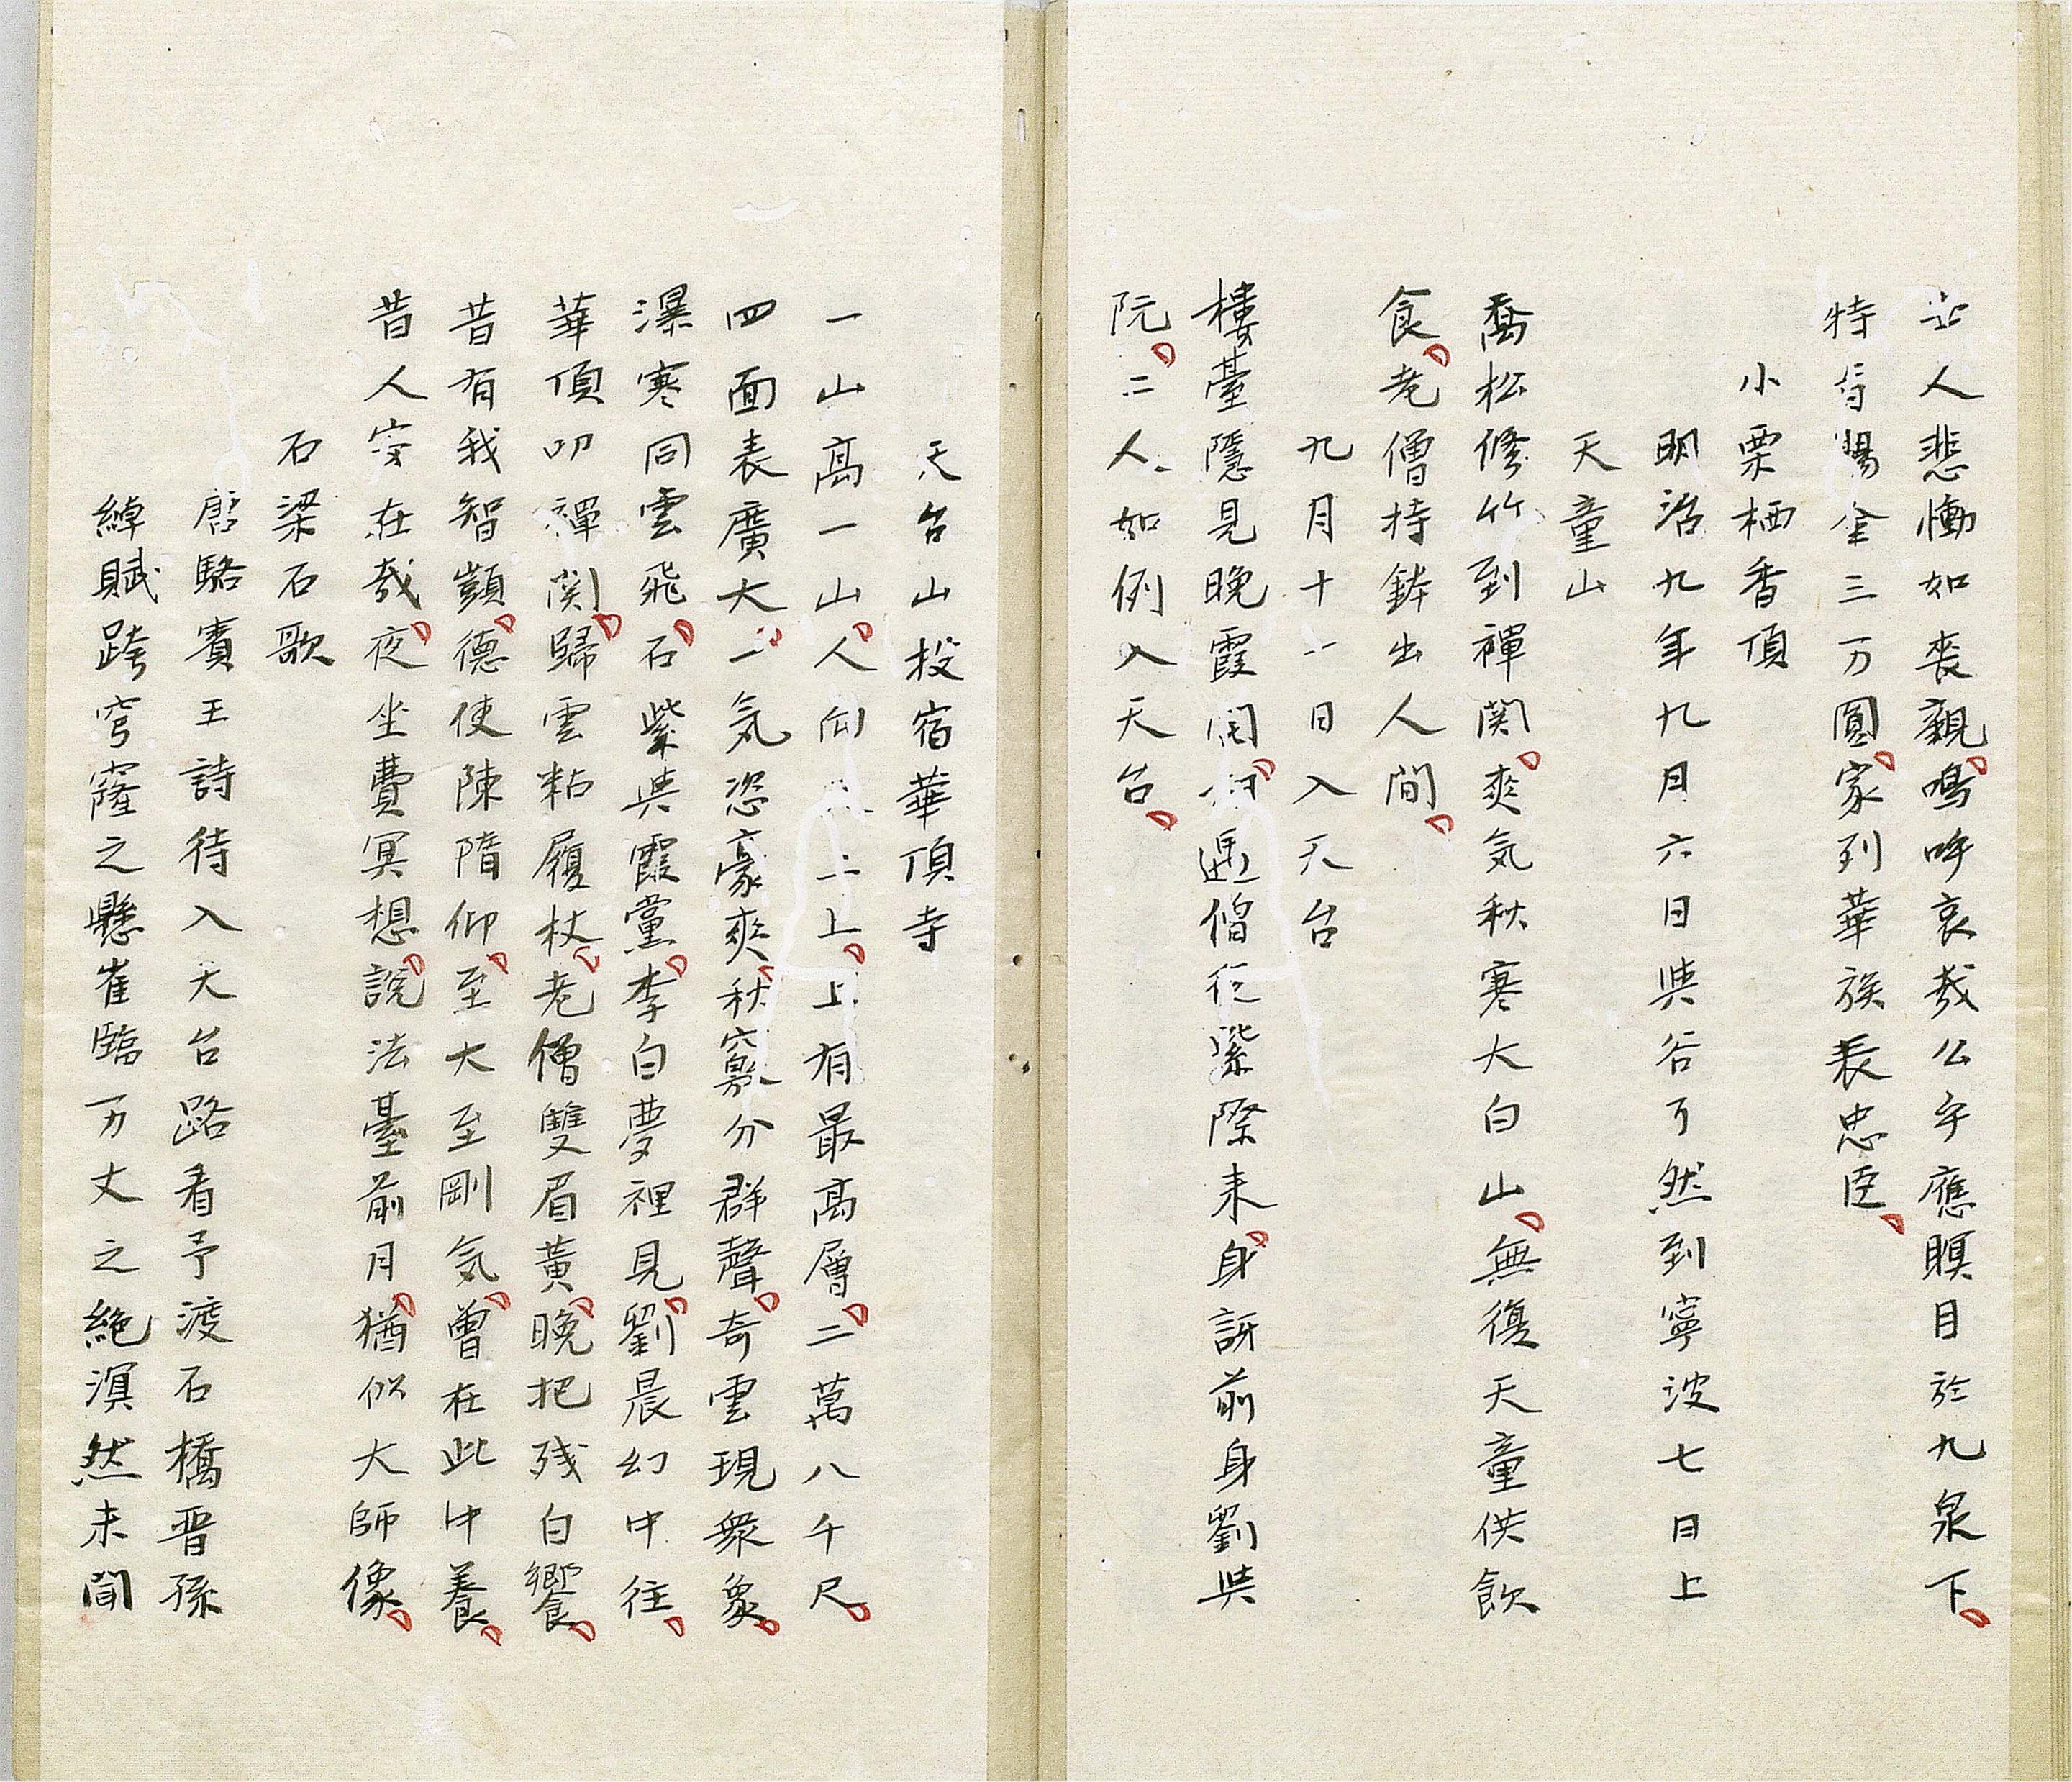 人悲慟如喪親嗚呼哀哉公乎應瞑目於九泉下
特旨賜金三万圓家列華族表忠臣
小栗栖香頂
明治九年九月六日與谷了然到寧波七日上
天童山
喬松修竹到禪関爽気秋寒大白山無復天童供飲
食老僧持鉢出人間
九月十一日入天台
樓臺隱見晚霞開遇僧従紫際来身訝前身劉與
阮二人如例入天台
天台山投宿華頂寺
一山高一山人向二上上有最高層二萬八千尺
四面表廣大一気恣豪爽秋竅分群聲奇雲現衆象
瀑寒同雲飛石紫與霞黨李白夢裡見劉晨幻中往
華頂叩禪関歸雲粘履杖老僧雙眉黃晚把残白饗
昔有我智顗德使陳隋仰至大至剛気曾在此中養
昔人安在哉夜坐費冥想說法臺前月猶似大師像
石梁石歌
唐駱賓王詩待入天台路看予渡石橋晋孫
綽賦跨穹窿之懸崔臨万丈之絶溟然未聞